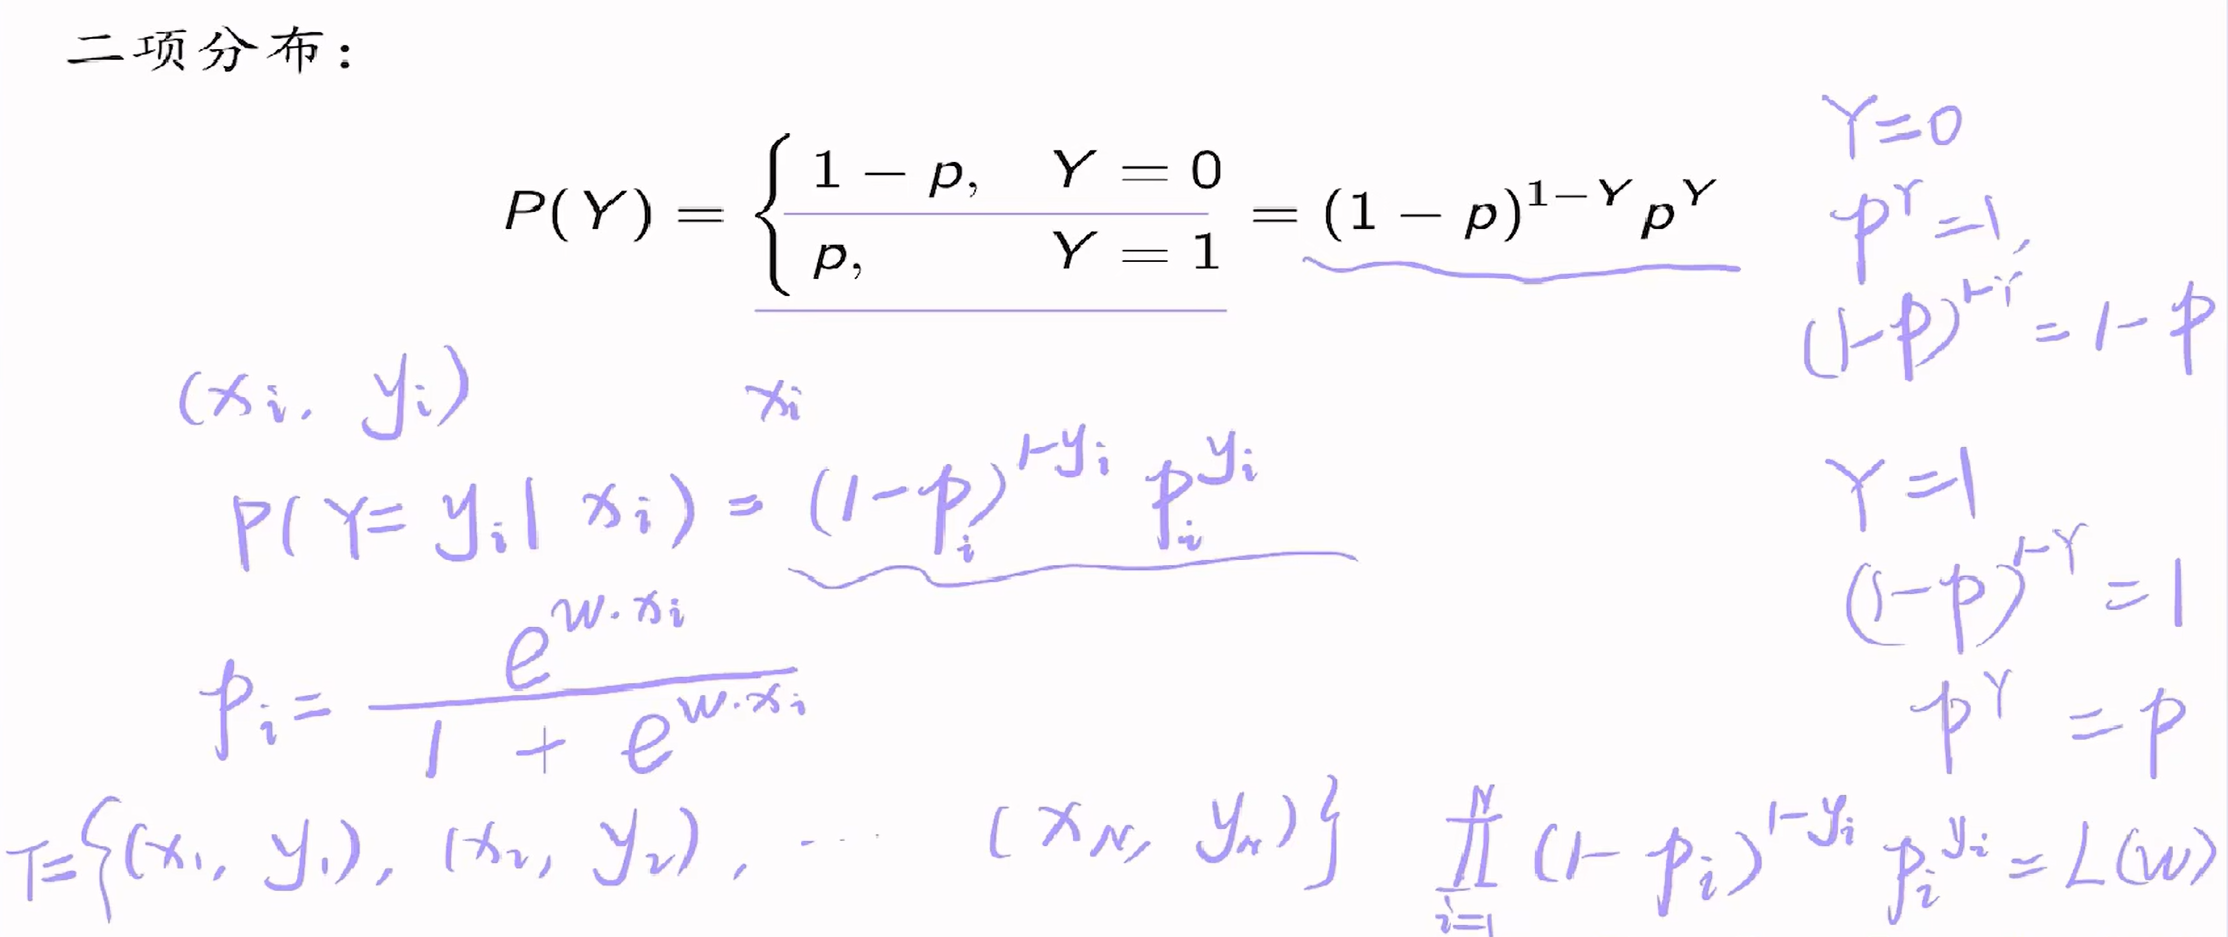 二项分布：
P(Y) = { 1 − p, Y = 0
p, Y = 1 = (1 − p)^{1−Y} p^Y
Y=0
p^Y =1,
(1-p)^{1-Y} = 1-p
(x_i, y_i) x_i
P(Y= y_i | x_i) = (1-p_i)^{1-y_i} p_i^{y_i}
Y=1
(1-p)^{1-Y} = 1
p^Y = p
p_i = e^{w·x_i} / 1 + e^{w·x_i}
T={(x_1, y_1), (x_2, y_2), ... (x_N, y_N)} ∏_{i=1}^{N} (1-p_i)^{1-y_i} p_i^{y_i} = L(w)